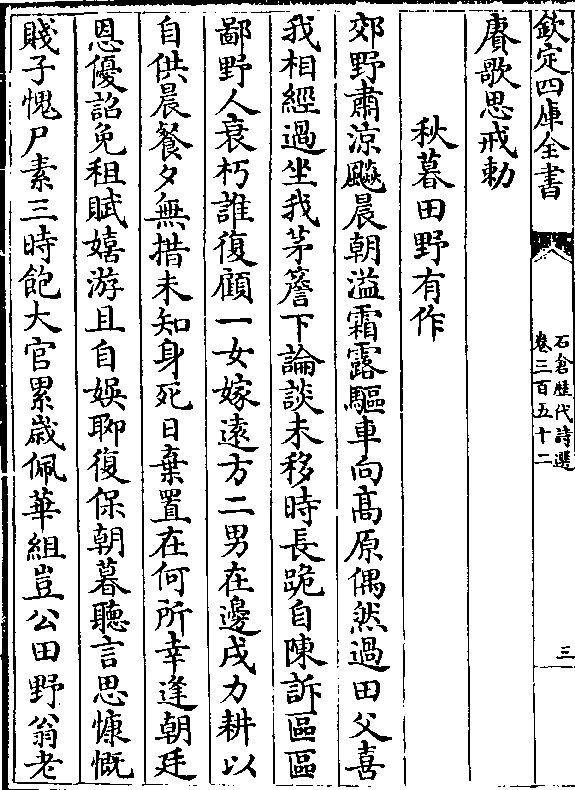 欽定四庫全書
石倉歷代詩選
卷三百五十二
三
賡歌思戒勅
秋暮田野有作
郊野肅涼飈晨朝溢霜露驅車向高原偶然過田父喜
我相經過坐我茅簷下論談未移時長跪自陳訴區區
鄙野人衰朽誰復顧一女嫁遠方二男在邊戍力耕以
自供晨餐夕無措未知身死日棄置在何所幸逢朝廷
恩優詔免租賦嬉游且自娛聊復保朝暮聽言思慷慨
賤子愧尸素三時飽大官累歲佩華組豈公田野翁老